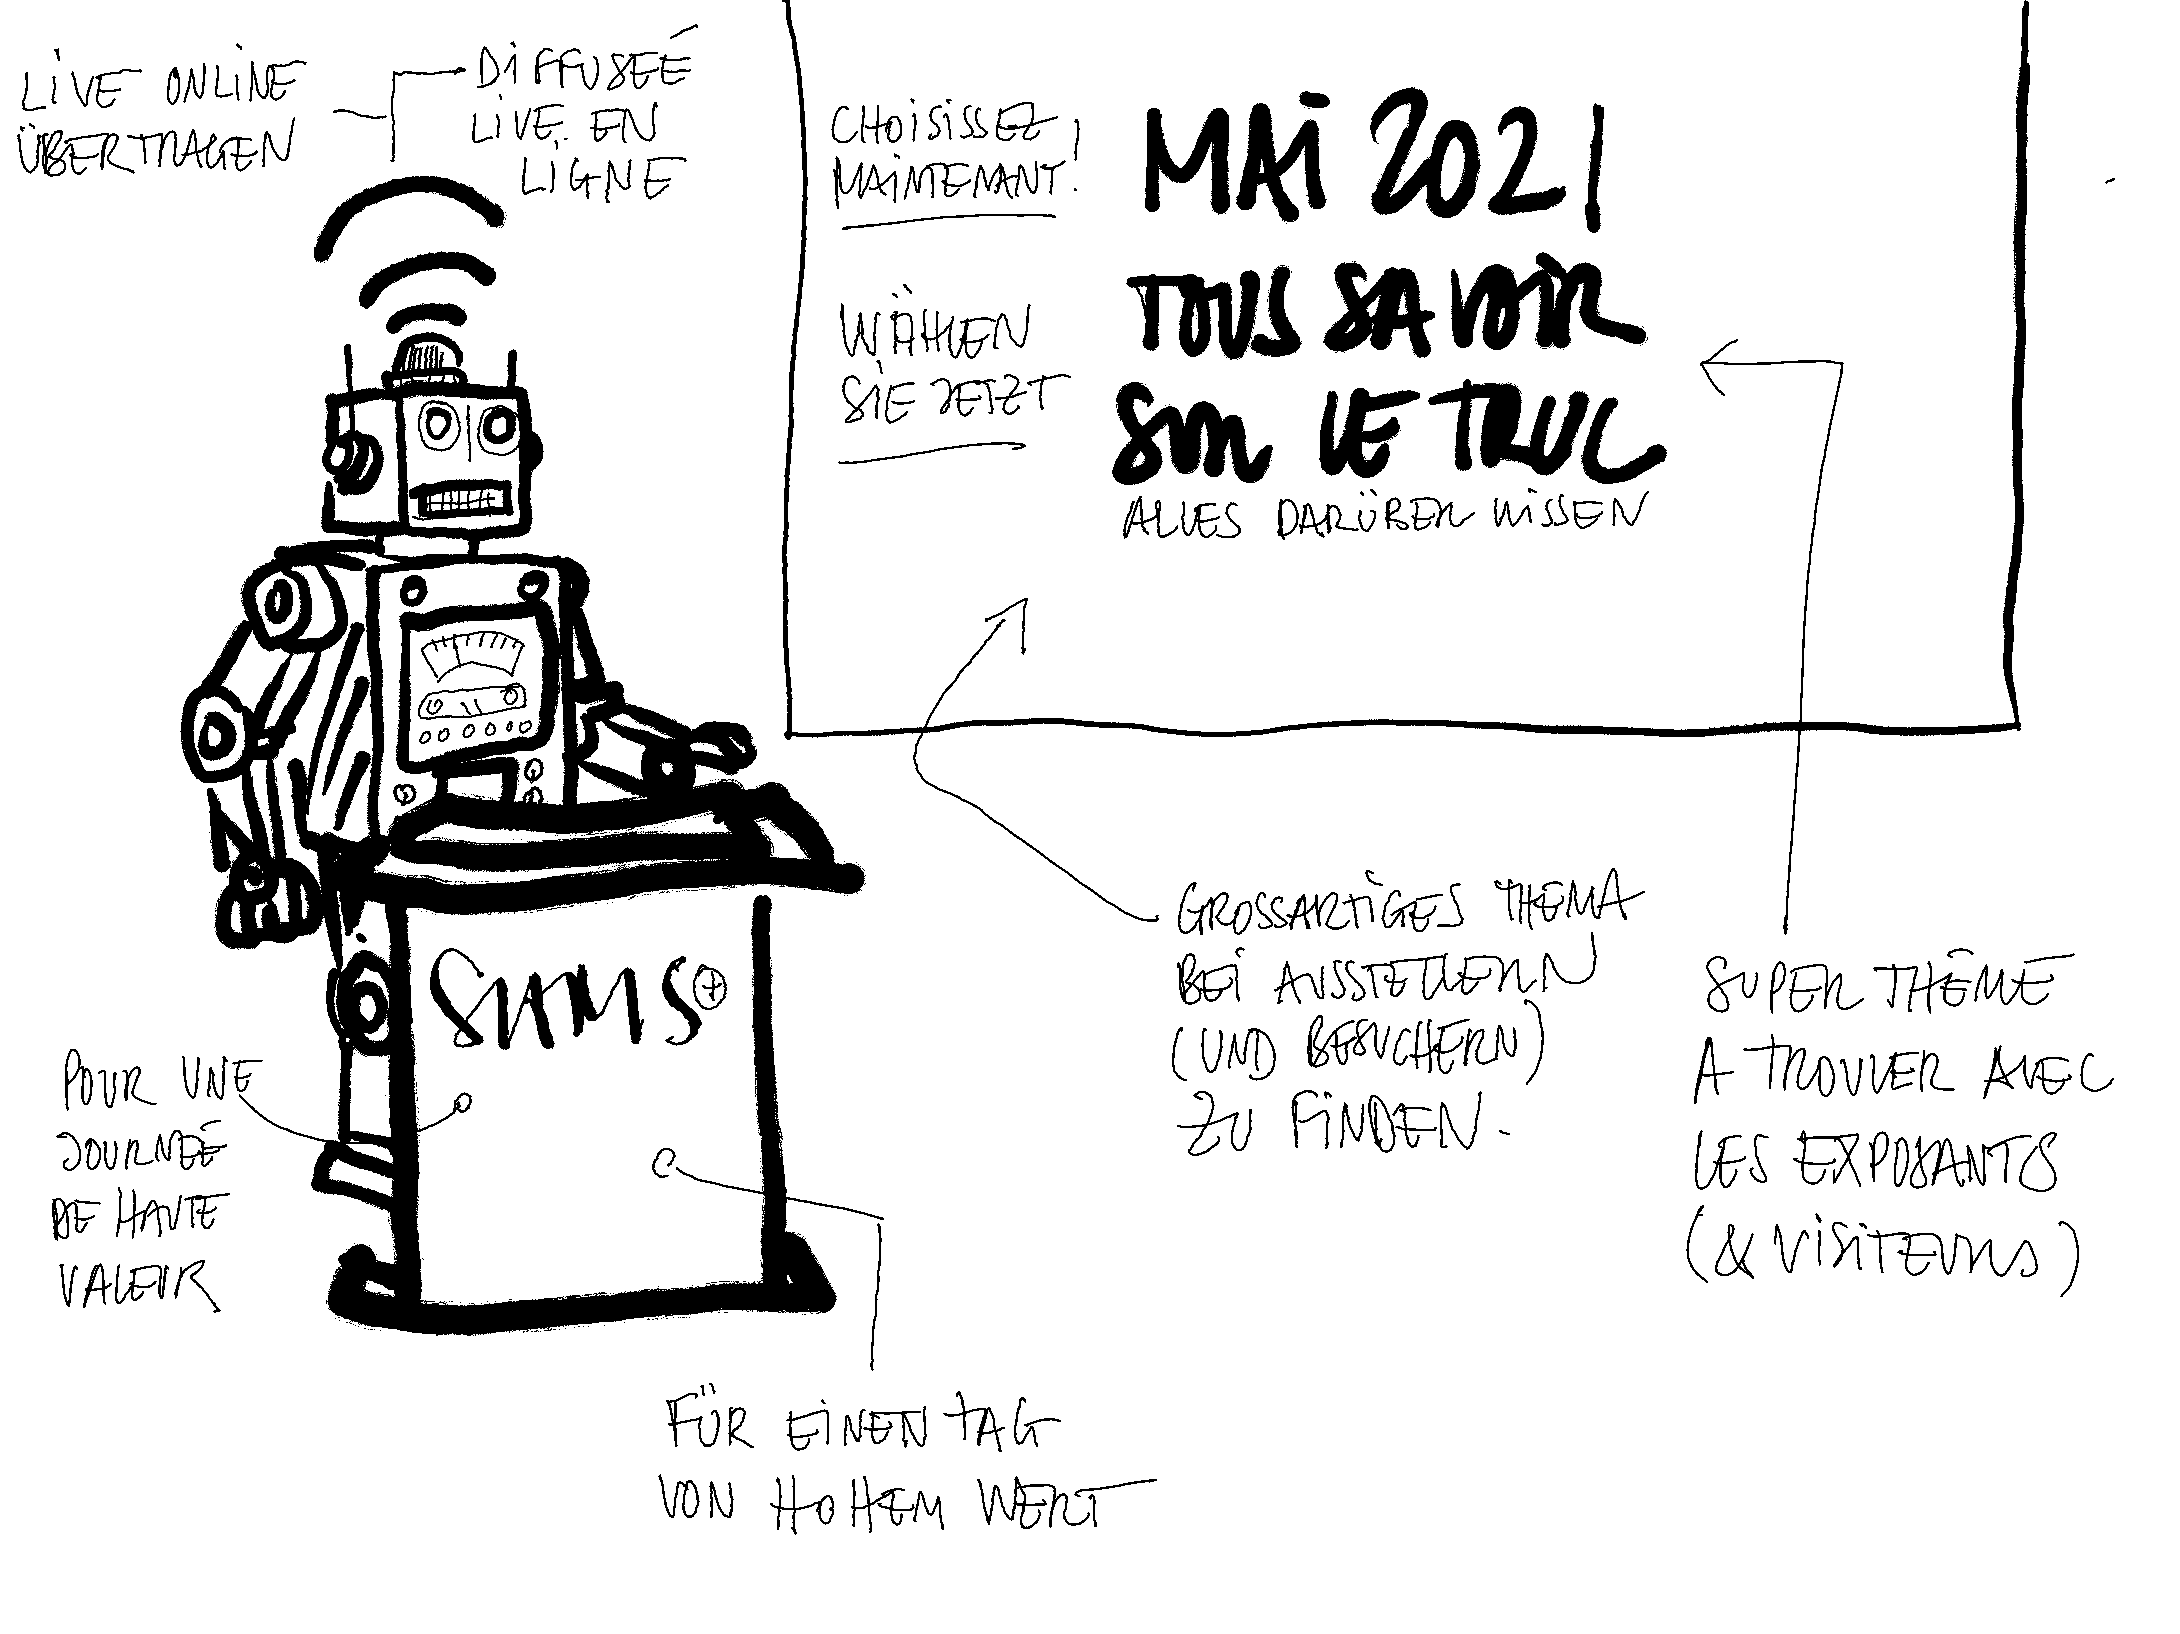 LIVE ONLINE
ÜBERTRAGEN
DIFFUSÉE
LIVE EN
LIGNE
CHOISISSEZ
MAINTENANT!
WÄHLEN
SIE JETZT
MAI 2021
TOUS SAVOIR
SUR LE TRUC
ALLES DARÜBER WISSEN
GROSSARTIGES THEMA
BEI AUSSTELLERN
(UND BESUCHERN)
ZU FINDEN.
SUPER THÈME
A TROUVER AVEC
LES EXPOSANTS
(& VISITEURS)
SHMS+
POUR UNE
JOURNÉE
DE HAUTE
VALEUR
FÜR EINEN TAG
VON HOHEM WERT